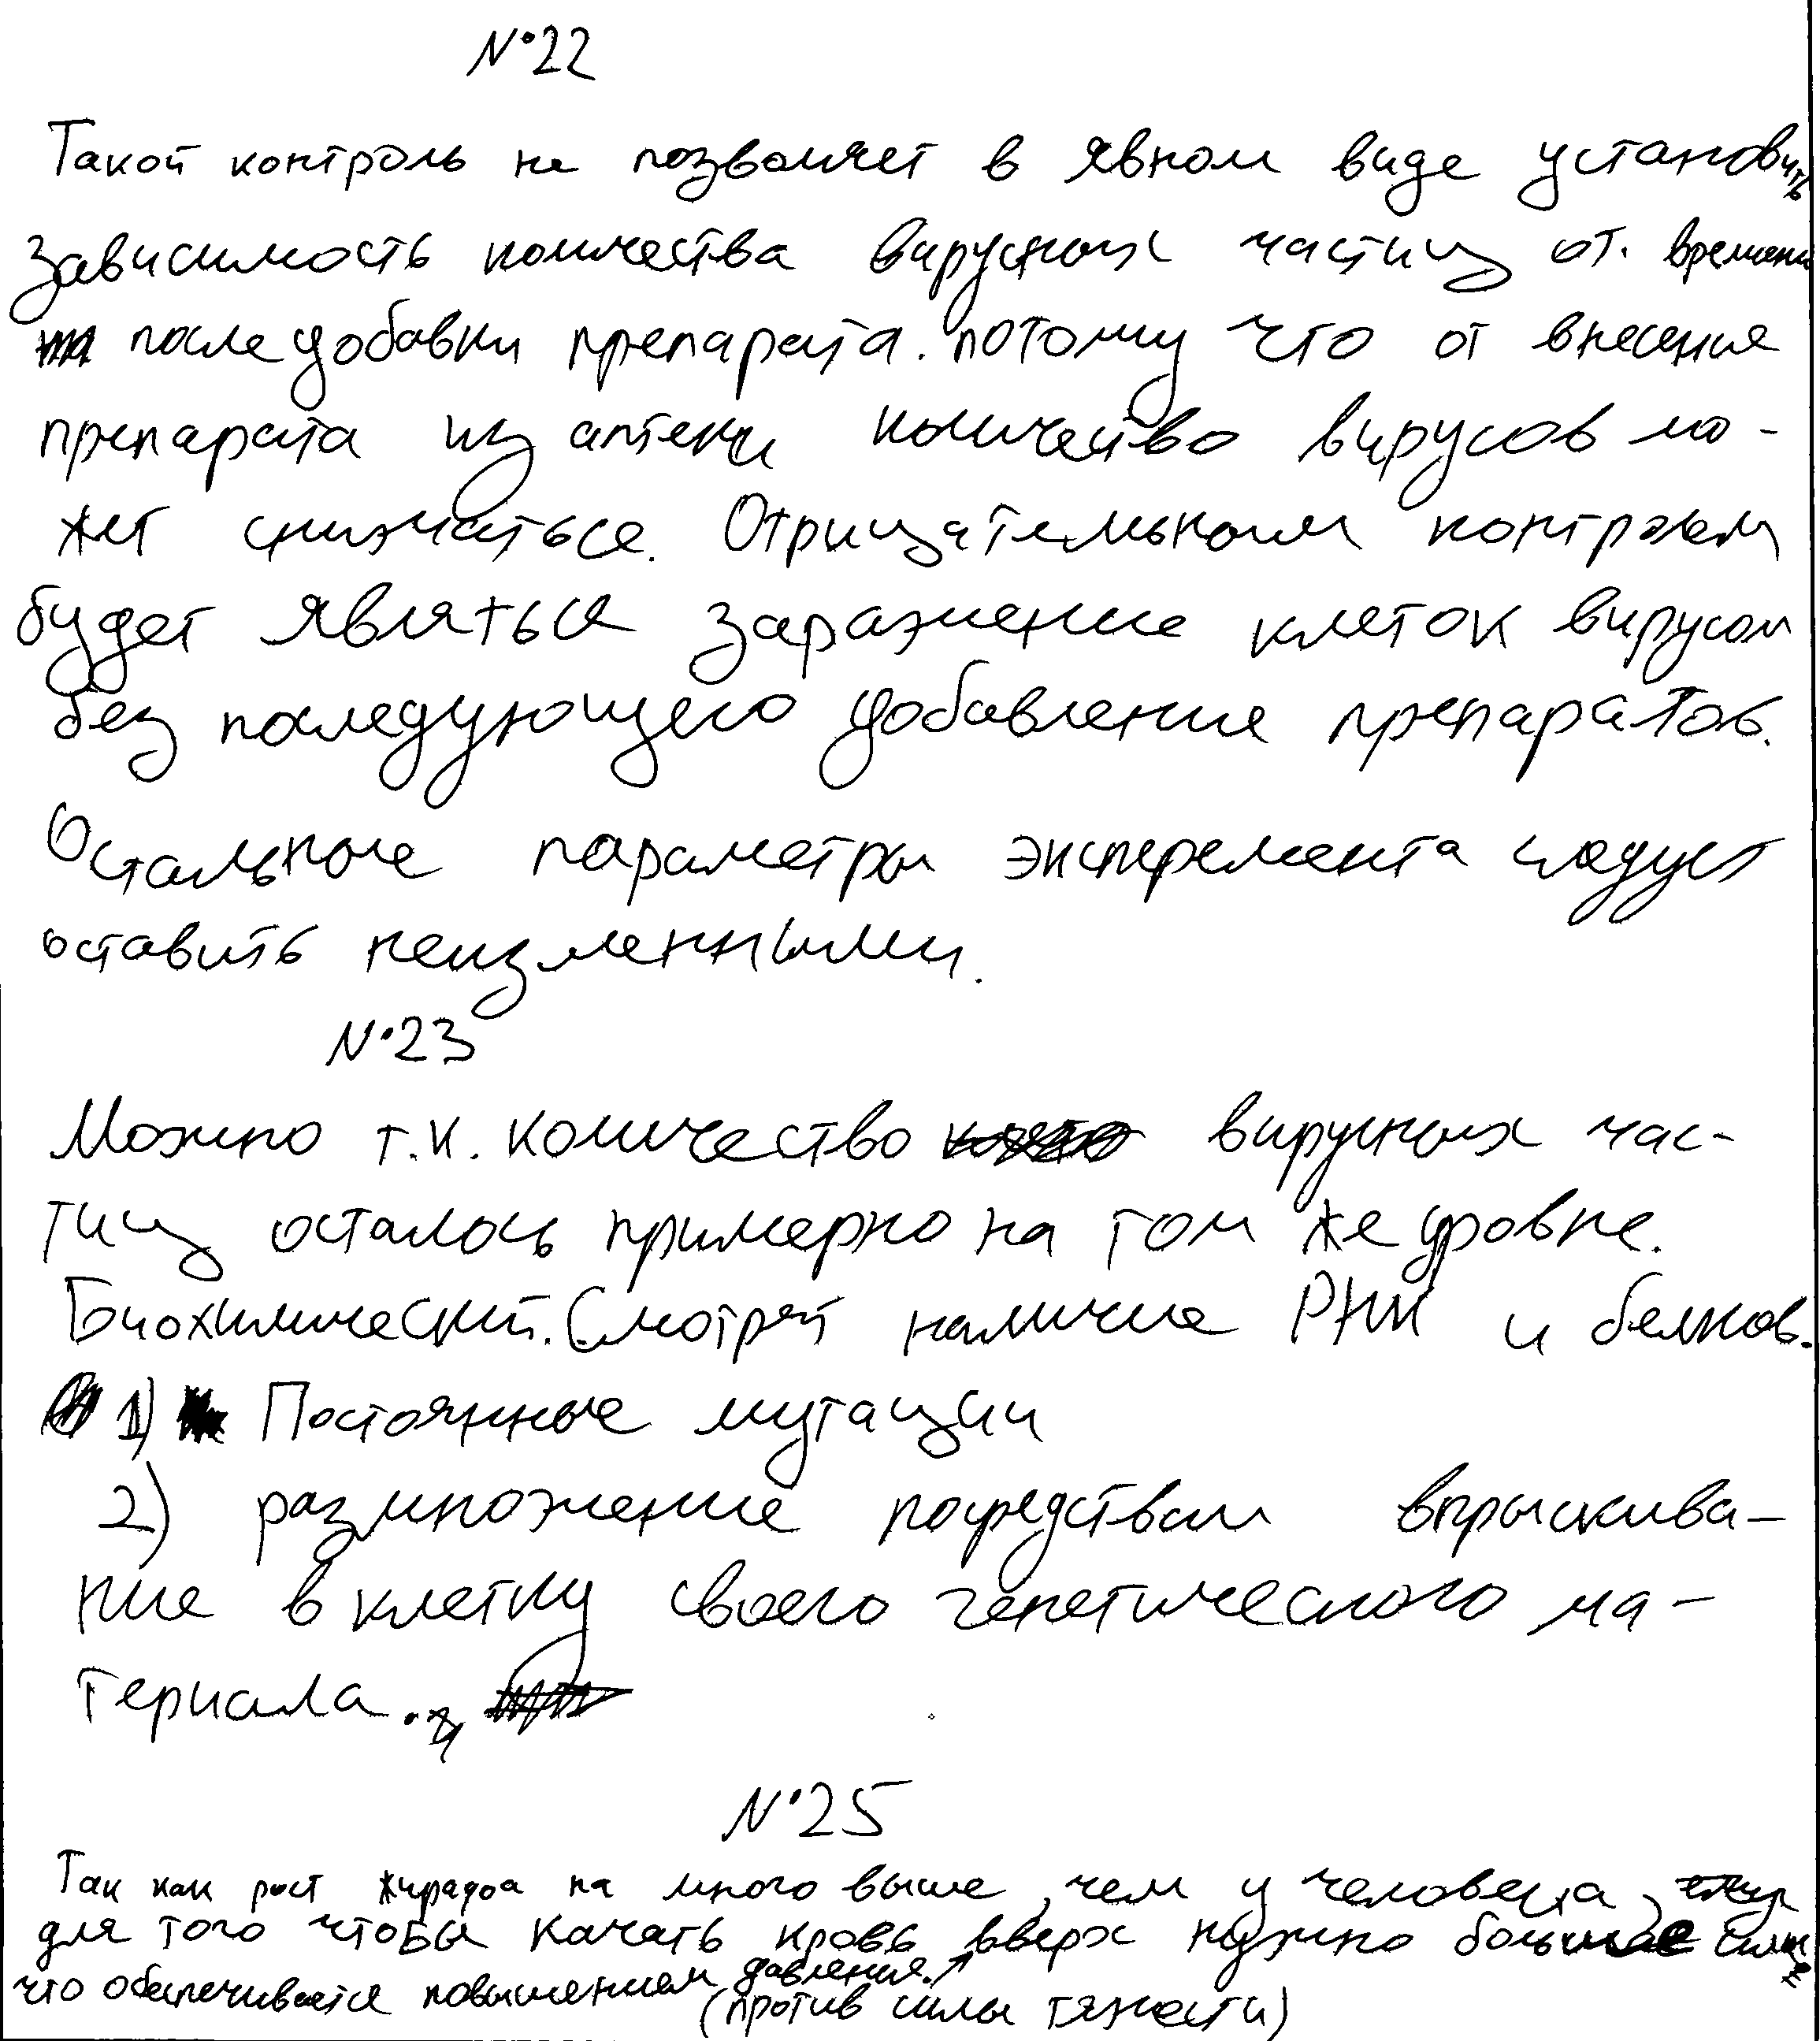 №22
Такой контроль не позволяет в явном виде установить
зависимость количества вирусных частиц от. времени
после добавки препарата. потому что от внесения
препарата из аптеки количество вирусов мо-
жет снижаться. Отрицательным контролем
будет являться заражение клеток вирусом
без последующего добавление препаратов.
Остальные параметры эксперемента следует
оставить неизменными.
№23
Можно т.к. количество вирусных час-
тиц осталось примерно на том же уровне.
Биохимический. Смотрят наличие РНК и белков.
1) Постоянные мутации
2) размножение посредствам впрыскива-
ние в клетку своего генетического ма-
териала.
№25
Так как рост жирафа на много выше, чем у человека,
для того чтобы качать кровь вверх нужно больше силы
что обеспечивается повышением давления.
(против силы тяжести)